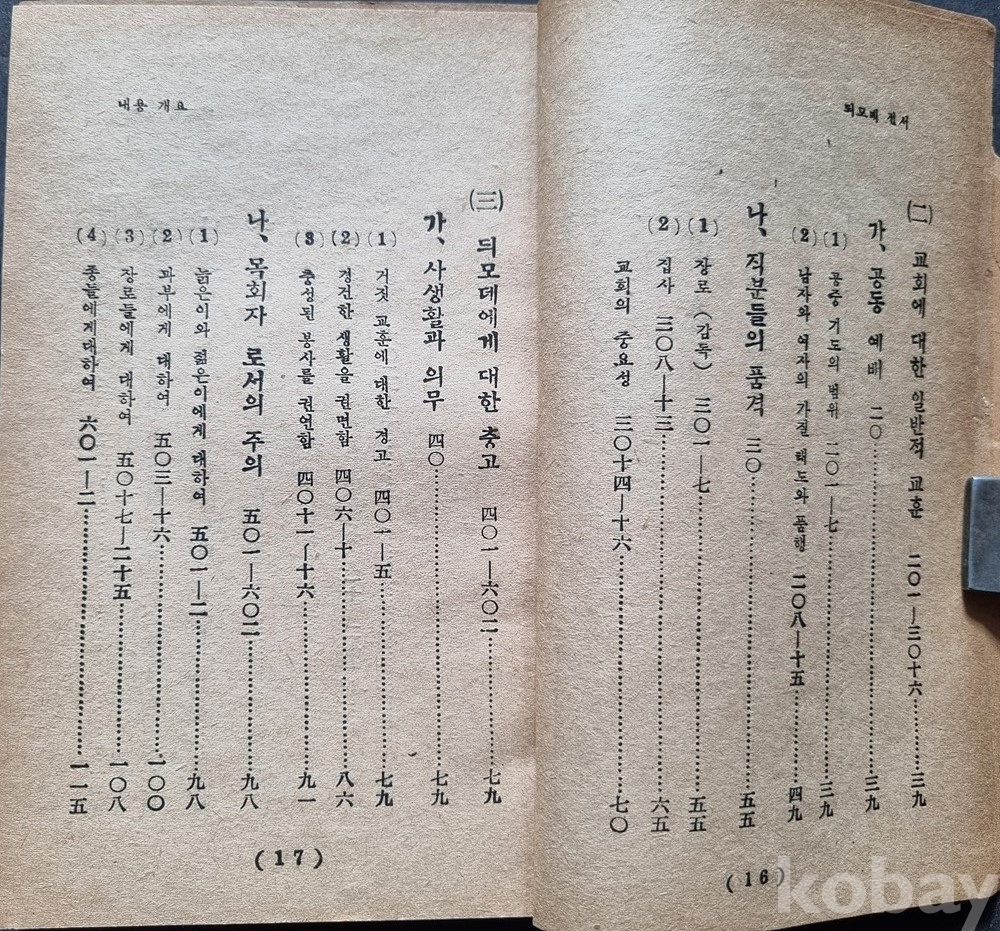 듸모데 전서
㈡ 교회에 대한 일반적 교훈 二○一—三○十六 三九
가、 공동 예배 二○ 三九
(1) 공중 기도의 범위 二○一—七 三九
(2) 남자와 여자의 가질 태도와 품행 二○八—十五 四九
나、 직분들의 품격 三○ 五五
(1) 장로 (감독) 三○一—七 五五
(2) 집사 三○八—十三 六五
교회의 중요성 三○十四—十六 七○
(16)
내용 개요
㈢ 듸모데에게 대한 충고 四○一—六○二 七九
가、 사생활과 의무 四○ 七九
(1) 거짓 교훈에 대한 경고 四○一—五 七九
(2) 경건한 생활을 권면함 四○六—十 八六
(3) 충성된 봉사를 권연함 四○十一—十六 九一
나、 목회자 로서의 주의 五○一—六○二 九八
(1) 늙은이와 젊은이에게 대하여 五○一—二 九八
(2) 과부에게 대하여 五○三—十六 一○○
(3) 장로들에게 대하여 五○十七—二十五 一○八
(4) 종들에게대하여 六○一—二 一一五
(17)
kobay